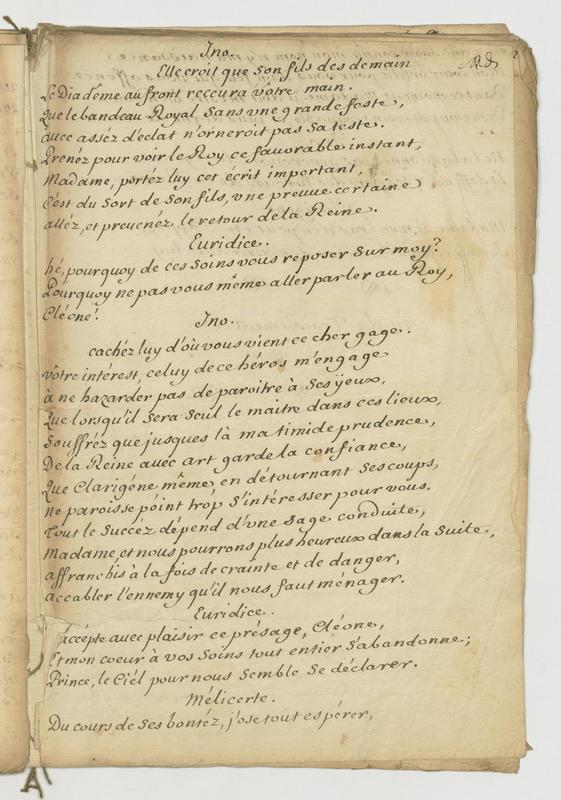 Ino.
Elle croit que son fils des demain
Le Diadême au front recevra vôtre main.
Que le bandeau Royal sans vne grande feste,
auec asséz d'eclat n'orneroit pas sa teste.
Prenéz pour voir le Roy ce fauorable instant,
Madame, portéz luy cet écrit important,
C'est du sort de son fils, vne preuue certaine
alléz, et preuenéz, le retour de la Reine.
Euridice.
hé, pourquoy de ces soins vous reposer sur moy?
Pourquoy ne pas vous même aller parler au Roy,
Cléone!
Ino.
cachéz luy d'où vous vient ce cher gage.
vôtre intérest, celuy de ce héros m'engage
à ne hazarder pas de paroitre à ses yeux,
Que lorsqu'il sera seul le maitre dans ces lieux,
Souffréz que jusques là ma timide prudence,
De la Reine auec art garde la confiance,
Que Clarigéne même en détournant ses coups,
ne paroisse point trop s'intéresser pour vous.
Tout le succéz dépend d'vne sage conduite,
Madame, et nous pourrons plus heureux dans la suite,
affranchis à la fois de crainte et de danger,
accabler l'ennemy qu'il nous faut ménager.
Euridice.
J'accépte auec plaisir ce présage, Cléone,
Et mon coeur à vos soins tout entier s'abandonne;
Prince, le Ciél pour nous semble se déclarer.
Mélicerte.
Du cours de ses bontéz, j'ose tout espérer,